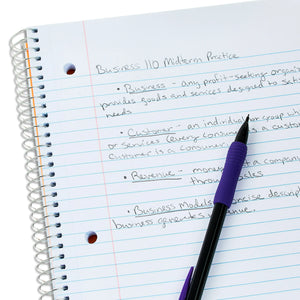 Business 110 Midterm Practice
• Business - any profit-seeking organi
provides goods and services designed to sat
needs
• Customer - an individual or group wh
or services (every consumer is a custom
customer is a consumer
• Revenue - mone a compan
through sales
• Business Model concise descript
business generates revenue.